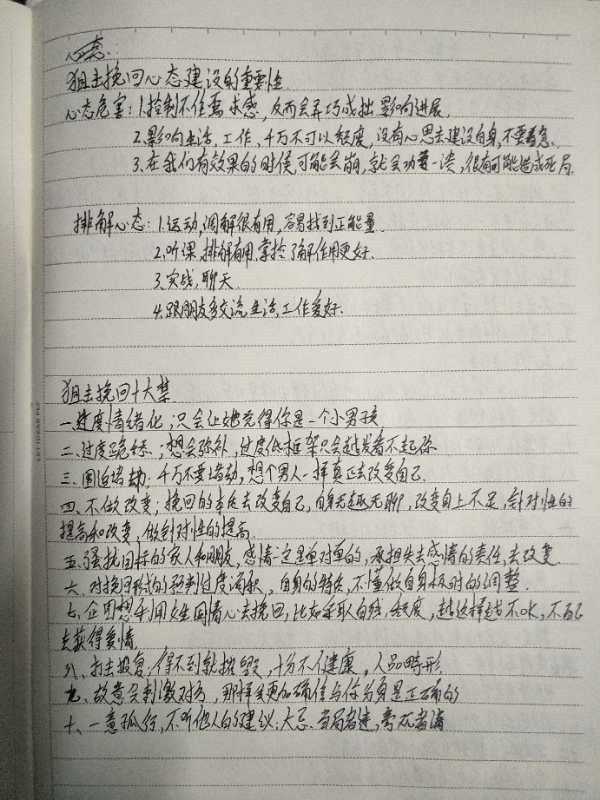 心态:
狙击挽回心态建设的重要性
心态危害:1.控制不住需求感,反而会弄巧成拙影响进展
2.影响生活,工作,千万不可以颓废,没有心思去建设自身,不要着急.
3.在我们有效果的时候,可能会崩,就会功亏一溃,很有可能造成死局.
排解心态:1.运动,调解很有用,容易找到正能量.
2.听课,排解有用,掌控了解作用更好.
3.实战,聊天.
4.跟朋友多交流生活,工作爱好.
狙击挽回十大禁
一.过度情绪化;只会让她觉得你是一个小男孩
二.过度跪舔;想会弥补,过度低框架只会越发看不起你
三.围追堵劫:千万不要堵劫,想个男人一样真正去改变自己.
四、不做改变;挽回的本质去改变自己,自身无趣无聊,改变自上不足,针对性的
提高和改变,做针对性的提高.
五.骚扰目标的家人和朋友,感情这是单对单的,承担失去感情的责任,去改变.
六.对挽回形式的预判过度消极,自身的特点,不懂做自身及时的调整.
七、企图想利用女生同情心去挽回,比如采取自残,颓废,越这样越不OK,不配
去获得爱情
八、打击报复:得不到就摧毁,十分不健康,人品畸形
九、故意会刺激对方,那样会更加确信与你分身是正确的
十、一意孤行,不听他人的建议;大忌.当局者迷,旁观者清